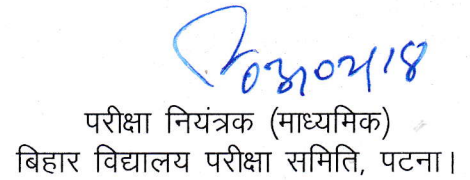 परीक्षा नियंत्रक (माध्यमिक)
बिहार विद्यालय परीक्षा समिति, पटना।